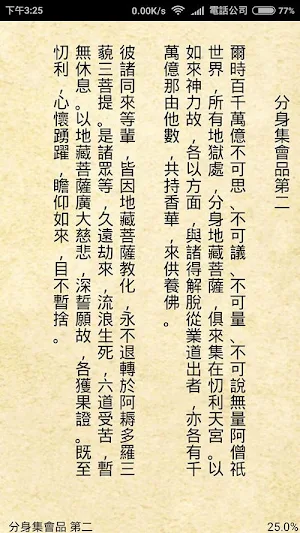 下午3:25
0.00K/s
電話公司
77%
分身集會品第二
爾時百千萬億不可思、不可議、不可量、不可說無量阿僧祇
世界，所有地獄處，分身地藏菩薩，俱來集在忉利天宮。以
如來神力故，各以方面，與諸得解脫從業道出者，亦各有千
萬億那由他數，共持香華，來供養佛。
彼諸同來等輩，皆因地藏菩薩教化，永不退轉於阿耨多羅三
藐三菩提。是諸眾等，久遠劫來，流浪生死，六道受苦，暫
無休息。以地藏菩薩廣大慈悲，深誓願故，各獲果證。既至
忉利，心懷踴躍，瞻仰如來，目不暫捨。
分身集會品 第二
25.0%